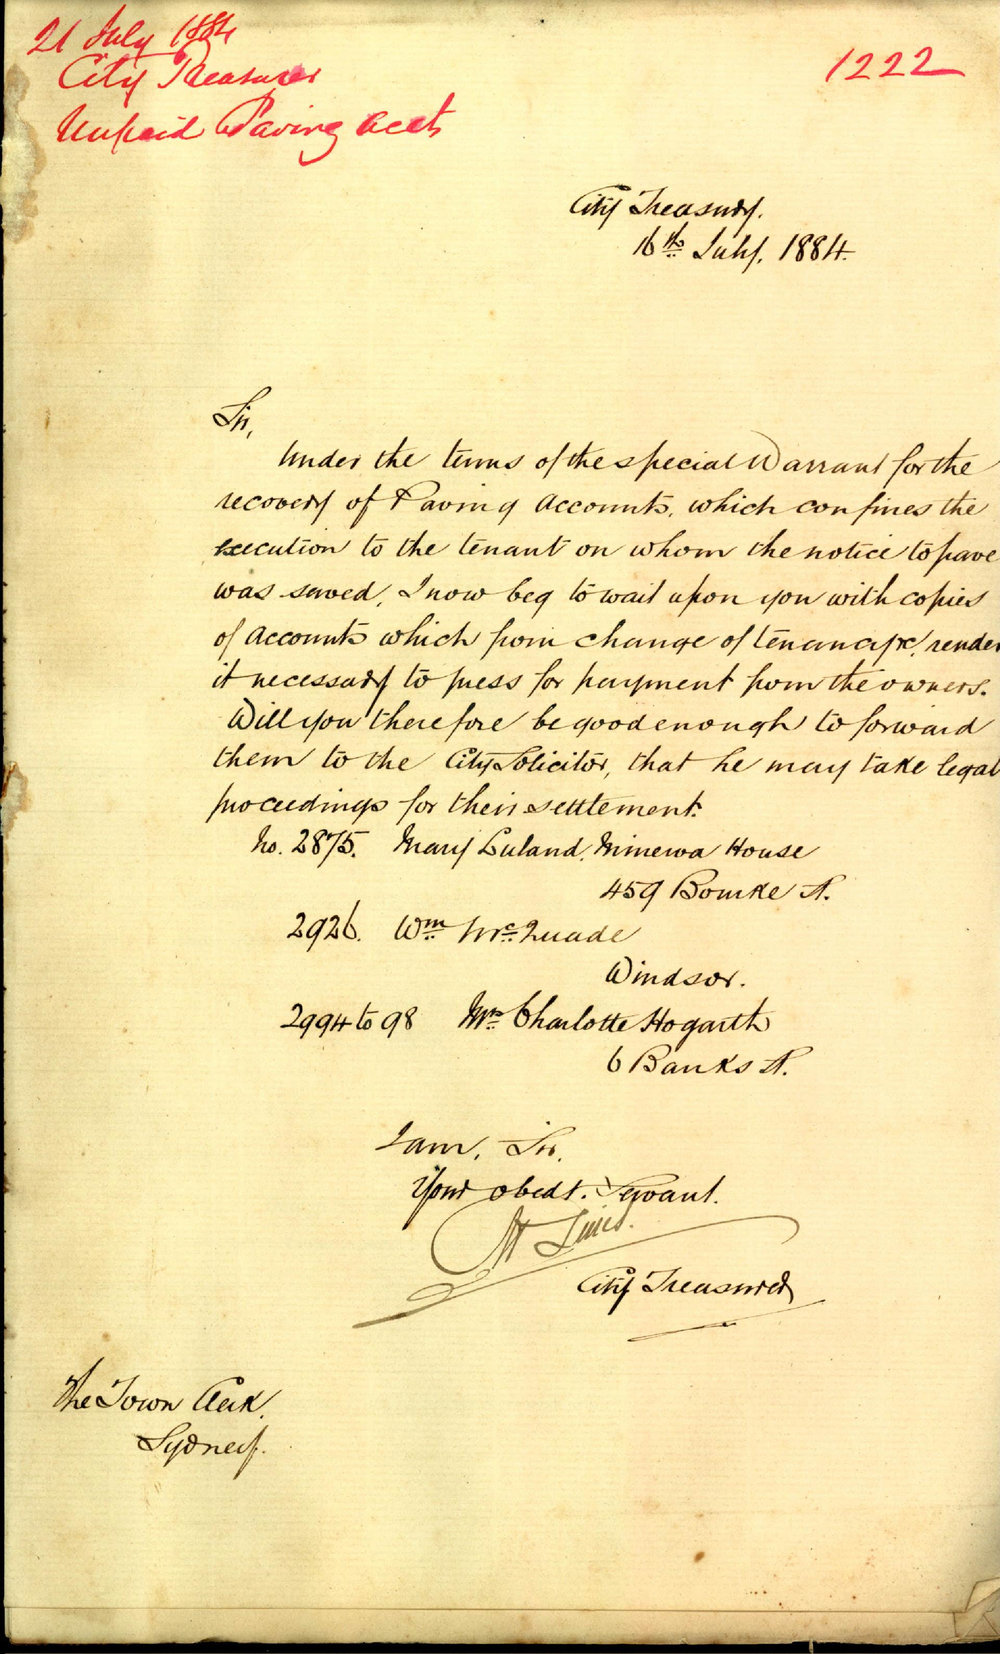 21 July 1884
City Treasurer
Unpaid Paving Accts
1222
City Treasury.
16th July. 1884.
Sir,
Under the terms of the special Warrant for the
recovery of Paving Accounts, which confines the
execution to the tenant on whom the notice to pave
was served, I now beg to wait upon you with copies
of Accounts which from change of tenancy &c, render
it necessary to press for payment from the owners.
Will you therefore be good enough to forward
them to the City Solicitor, that he may take legal
proceedings for their settlement.
No. 2875. Mary Luland, Minerva House
459 Bourke St.
2926. Wm McQuade
Windsor.
2994 to 98 Mrs Charlotte Hogarth
6 Banks St.
I am, Sir,
Your obedt. Servant.
City Treasurer
The Town Clerk,
Sydney.